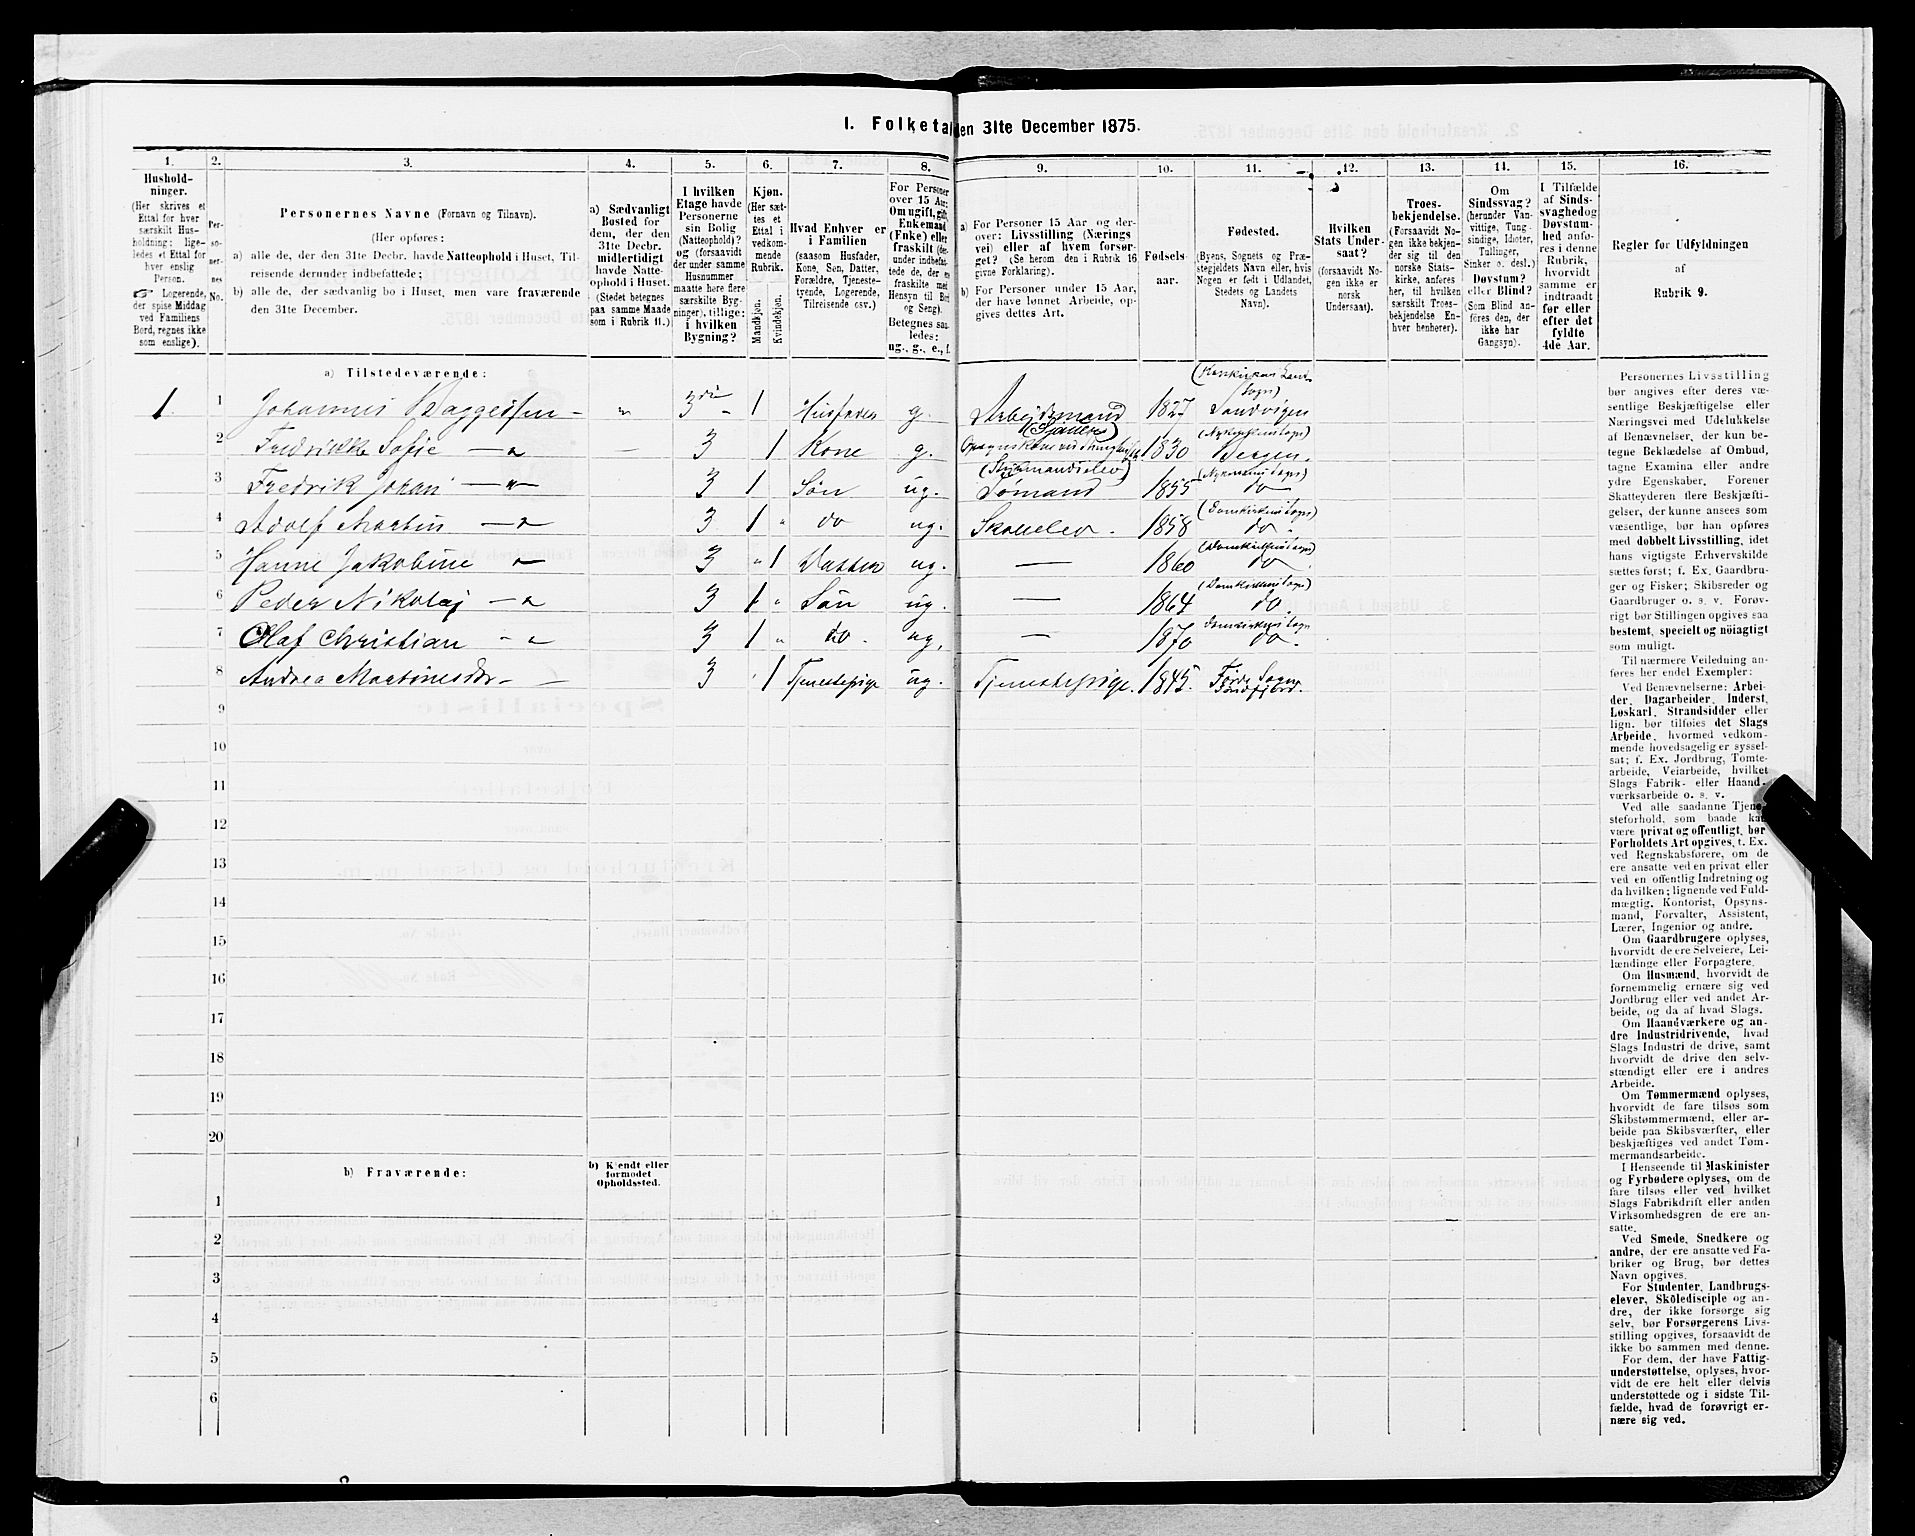 I. Folketal den 31te December 1875.
1.
Hushold-
ninger.
(Her skrives et
Ettal for hver
særskilt Hus-
holdning: lige-
ledes et Ettal for
hver enslig
Person.
Logerende,
der spise Middag
ved Familiens
Bord, regnes ikke
som enslige).
2.
Per-
so-
ner-
nes
No.
3.
Personernes Navne (Fornavn og Tilnavn).
(Her opføres:
a) alle de, der den 31te Decbr. havde Natteophold i Huset, Til-
reisende derunder indbefattede;
b) alle de, der sædvanlig bo i Huset, men vare fraværende
den 31te December.
4.
a) Sædvanligt
Bosted for
dem, der den
31te Decbr.
midlertidigt
havde Natte-
ophold i Huset.
(Stedet betegnes
paa samme Maade
som i Rubrik 11.)
5.
I hvilken
Etage havde
Personerne
sin Bolig
(Natteophold)?
og (forsaavidt
der under samme
Husnummer
maatte høre flere
særskilte Byg-
ninger), tillige:
i hvilken
Bygning?
6.
Kjøn.
(Her sæt-
tes et
Ettal i
vedkom-
mende
Rubrik.
Mandkjøn.
Kvindekjøn.
7.
Hvad Enhver er
i Familien
(saasom Husfader,
Kone, Søn, Datter,
Forældre, Tjeneste-
tyende, Logerende,
Tilreisende osv.)
8.
For Personer
over 15 Aar:
Om ugift, gift,
Enkemand
(Enke) eller
fraskilt (der-
under indbefat-
tede de, der ere
fraskilte med
Hensyn til Bord
og Seng).
Betegnes saa-
ledes:
ug., g., e., f.
9.
a) For Personer 15 Aar og der-
over: Livsstilling (Nærings
vei) eller af hvem forsør-
get? (Se herom den i Rubrik 16
givne Forklaring).
b) For Personer under 15 Aar,
der have lønnet Arbeide, op-
gives dettes Art.
10.
Fødsels-
aar.
11.
Fødested.
(Byens, Sognets og Præ-
stegjeldets Navn eller, hvis
Nogen er født i Udlandet,
Stedets og Landets
Navn).
12.
Hvilken
Stats Under-
saat?
(forsaavidt No-
gen ikke er
norsk
Undersaat).
13.
Troes-
bekjendelse.
(Forsaavidt No-
gen ikke bekjen-
der sig til den
norske Stats-
kirke, anføres
her, til hvilken
særskilt Troes-
bekjendelse En-
hver henhører).
14.
Om
Sindssvag?
(herunder Van-
vittige, Tung-
sindige, Idioter,
Tullinger,
Sinker o. desl.)
Døvstum?
eller Blind?
(Som Blind an-
føres den, der
ikke har
Gangsyn).
15.
I Tilfælde
af Sinds-
svaghed og
Døvstum-
hed anfø-
res i denne
Rubrik,
hvorvidt
samme er
indtraadt
før eller
efter det
fyldte
4de Aar.
16.
Regler for Udfyldningen
af
Rubrik 9.
a) Tilstedeværende:
1 1 Johannes Baggesen - " 3die - 1 Husfader g. Arbeidsmand 1827 Sandvigen
2 Fredrikke Sofie — " — 3 1 Kone g. 1830 Bergen.
3 Fredrik Johan — " 3 1 Søn ug. (Styrmandselev) Sømand 1855 do
4 Adolf Martin — " 3 1 " do ug. Skoleelev. 1858 (Domkirkens Sogn) do.
5 Hanne Jakobine " 3 " 1 Datter ug. — 1860 (Domkirkens Sogn) do
6 Peder Nikolaj — " 3 1 " Søn ug. — 1864 (Domkirkens Sogn) do.
7 Olaf Christian - " 3 1 " do. ug. — 1870 Domkirkens Sogn do.
8 Andrea Martinesdtr - - 3 1 Tjenestepige ug. Tjenestepige. 1845. Førde Sogn Søndfjord.
9
10
11
12
13
14
15
16
17
18
19
20
b) Fraværende:
b) Kjendt eller
formodet
Opholdssted.
1
2
3
4
5
6
Personernes Livsstilling
bør angives efter deres væ-
sentlige Beskjæftigelse eller
Næringsvei med Udelukkelse
af Benævnelser, der kun be-
tegne Beklædelse af Ombud,
tagne Examina eller andre
ydre Egenskaber. Forener
Skatteyderen flere Beskjæfti-
gelser, der kunne ansees som
væsentlige, bør han opføres
med dobbelt Livsstilling, idet
hans vigtigste Erhvervskilde
sættes først; f. Ex. Gaardbru-
ger og Fisker; Skibsreder og
Gaardbruger o. s. v. Forøv-
rigt bør Stillingen opgives saa
bestemt, specielt og nöiagtigt
som muligt.
Til nærmere Veiledning an-
føres her endel Exempler:
Ved Benævnelserne: Arbei-
der, Dagarbeider, Inderst,
Løskarl, Strandsidder eller
lign. bør tilføies det Slags
Arbeide, hvormed vedkom-
mende hovedsagelig er syssel-
sat; f. Ex. Jordbrug, Tomte-
arbeide, Veiarbeide, hvilket
Slags Fabrik- eller Haand-
værksarbeide o. s. v.
Ved alle saadanne Tjene-
steforhold, som baade kan
være privat og offentligt, bør
Forholdets Art opgives, t. Ex.
ved Regnskabsførere, om de
ere ansatte ved en privat eller
ved en offentlig Indretning og
da hvilken; lignende ved Fuld-
mægtig, Kontorist, Opsyns-
mand, Forvalter, Assistent,
Lærer, Ingeniør og andre.
Om Gaardbrugere oplyses,
hvorvidt de ere Selveiere, Lei-
lændinge eller Forpagtere.
Om Husmænd, hvorvidt de
fornemmelig ernære sig ved
Jordbrug eller ved andet Ar-
beide, og da af hvad Slags.
Om Haandværkere og an-
dre Industridrivende, hvad
Slags Industri de drive, samt
hvorvidt de drive den selv-
stændigt eller ere i andres
Arbeide.
Om Tømmermænd oplyses,
hvorvidt de fare tilsøs som
Skibstømmermænd, eller ar-
beide paa Skibsværfter, eller
beskjæftiges ved andet Tøm-
mermandsarbeide.
I Henseende til Maskinister
og Fyrbødere oplyses, om de
fare tilsøs eller ved hvilket
Slags Fabrikdrift eller anden
Virksomhedsgren de ere an-
satte.
Ved Smede, Snedkere og
andre, der ere ansatte ved Fa-
briker og Brug, bør dettes
Navn opgives.
For Studenter, Landbrugs-
elever, Skoledisciple og an-
dre, der ikke forsørge sig
selv, bør Forsørgerens Livs-
stilling opgives, forsaavidt de
ikke bo sammen med denne.
For dem, der have Fattig-
understøttelse, oplyses, hvor-
vidt de ere helt eller delvis
understøttede og i sidste Til-
fælde, hvad de forøvrigt er-
nære sig ved.